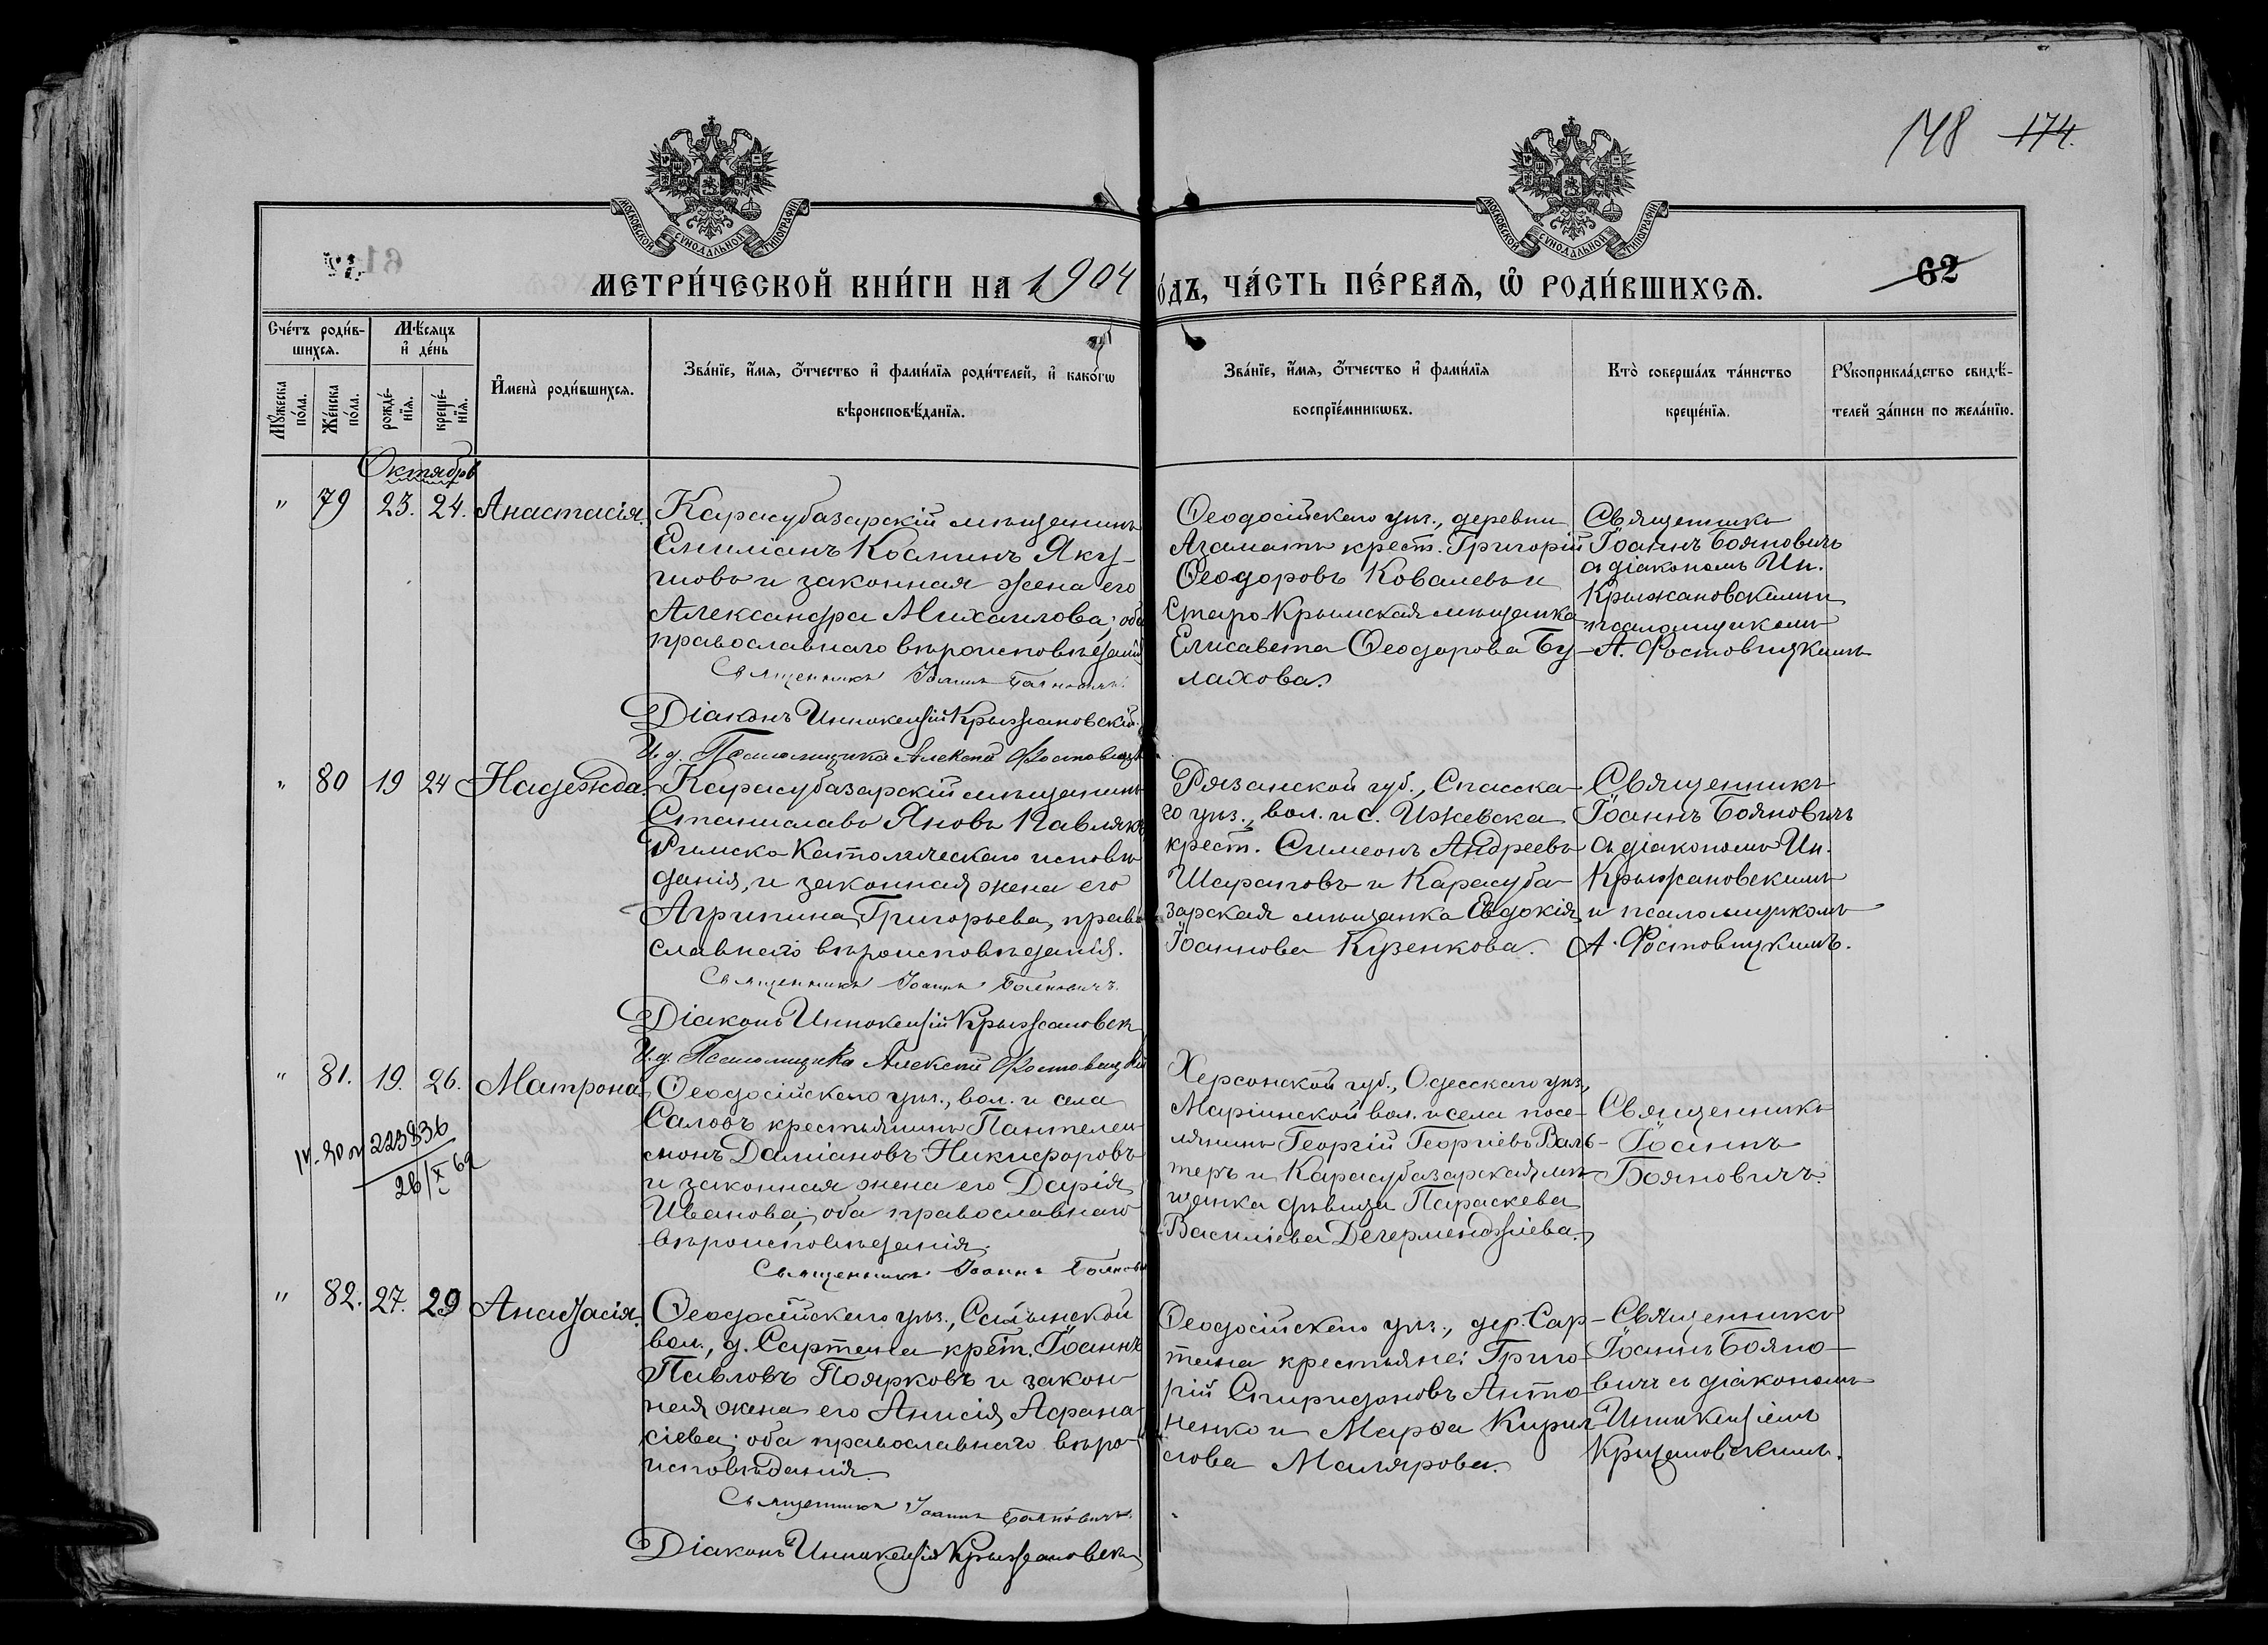 148 174.
МОСКОВСКОЙ СѴНОДАЛЬНОЙ ТИПОГРАФІИ
МОСКОВСКОЙ СѴНОДАЛЬНОЙ ТИПОГРАФІИ
62
МЕТРИ́ЧЕСКОЙ КНИ́ГИ НА 1904
о́дъ, ЧА́СТЬ ПЕ́РВАѦ, Ѡ҆ РОДИ́ВШИХСѦ.
Сче́тъ роди́в-
шихсѧ.
Мꙋжеска по́ла.
Же́нска по́ла.
Мѣ́сѧцъ
и҆ де́нь
рожде́-
нїѧ.
креще́-
нїѧ.
И҆мена̀ роди́вшихсѧ.
Зва́нїе, и҆́мѧ, ѻ҆́тчество и҆ фами́лїѧ роди́телей, и҆ како́гѡ
вѣроисповѣ́данїѧ.
Зва́нїе, и҆́мѧ, ѻ҆́тчество и҆ фами́лїѧ
воспрїе́мникѡвъ.
Кто̀ соверша́лъ та́инство
креще́нїѧ.
Рꙋкоприкла́дство свидѣ́-
телей за́писи по жела́нїю.
Октябрь
" 79 23. 24. Анастасія.
Карасубазарскій мѣщанинъ
Емиліанъ Косминъ Яку-
шовъ и законная жена его
Александра Михаилова; оба
православнаго вѣроисповѣданія
Священникъ Іоаннъ Бояновичъ.
Діаконъ Иннокентій Крыжановскій.
И. д. Псаломщика Алексій Фостовицкій
Ѳеодосійскаго уѣз., деревни
Азаматъ крест. Григорій
Ѳеодоровъ Ковалевъ и
Старо-Крымская мѣщанка
Елисавета Ѳеодорова Бу-
лахова.
Священникъ
Іоаннъ Бояновичъ
съ діакономъ Ин.
Крыжановскимъ и
псаломщикомъ
А. Фостовицкимъ
" 80 19 24 Надежда.
Карасубазарскій мѣщанинъ
Станиславъ Яновъ Павлякъ
Римско-Католическаго исповѣ
данія, и законная жена его
Агрипина Григорьева, право
славнаго вѣроисповѣданія.
Священникъ Іоаннъ Бояновичъ.
Діаконъ Иннокентій Крыжановск
И. д. Псаломщика Алексій Фостовицкій
Рязанской губ., Спасска-
го уѣз., вол. и с. Ижевска
крест. Симеонъ Андреевъ
Шараповъ и Карасуба-
зарская мѣщанка Евдокія
Іоаннова Кузенкова.
Священникъ
Іоаннъ Бояновичъ
съ діакономъ Ин.
Крыжановскимъ
и псаломщикомъ
А. Фостовицкимъ.
" 81. 19. 26. Матрона
223836
26/X 62
Ѳеодосійскаго уѣз., вол. и села
Саловъ крестьянинъ Пантелеи
монъ Даміановъ Никифоровъ
и законная жена его Дарія
Иванова; оба православнаго
вѣроисповѣданія.
Священникъ Іоаннъ Боянови
Херсонской губ., Одесскаго уѣз.,
Маріинской вол. и села посе-
лянинъ Георгій Георгіевъ Валь-
теръ и Карасубазарская мѣ
щанка дѣвица Параскева
Василіева Дегерменджіева.
Священникъ
Іоаннъ
Бояновичъ.
" 82. 27. 29 Анастасія.
Ѳеодосійскаго уѣз., Салынской
вол., д. Сартана крест. Іоаннъ
Павловъ Поярковъ и закон-
ная жена его Анисія Афана-
сіева; оба православнаго вѣро-
исповѣданія.
Священникъ Іоаннъ Бояновичъ.
Діаконъ Иннокентій Крыжановск
Ѳеодосійскаго уѣз., дер. Сар-
тана крестьяне: Григо
рій Спиридоновъ Анто-
ненко и Марѳа Кирил
лова Малярова.
Священникъ
Іоаннъ Бояно-
вичъ съ діакономъ
Иннокентіемъ
Крыжановскимъ.